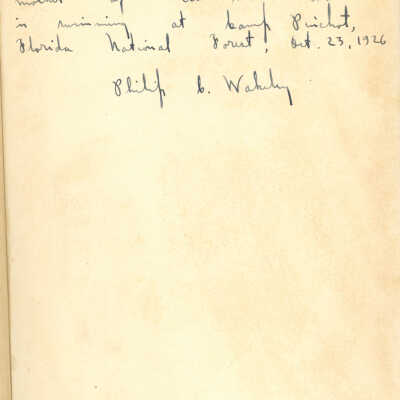 is swimming at Camp Pinchot,
Florida National Forest, Oct. 23, 1926
Philip C. Wakeley